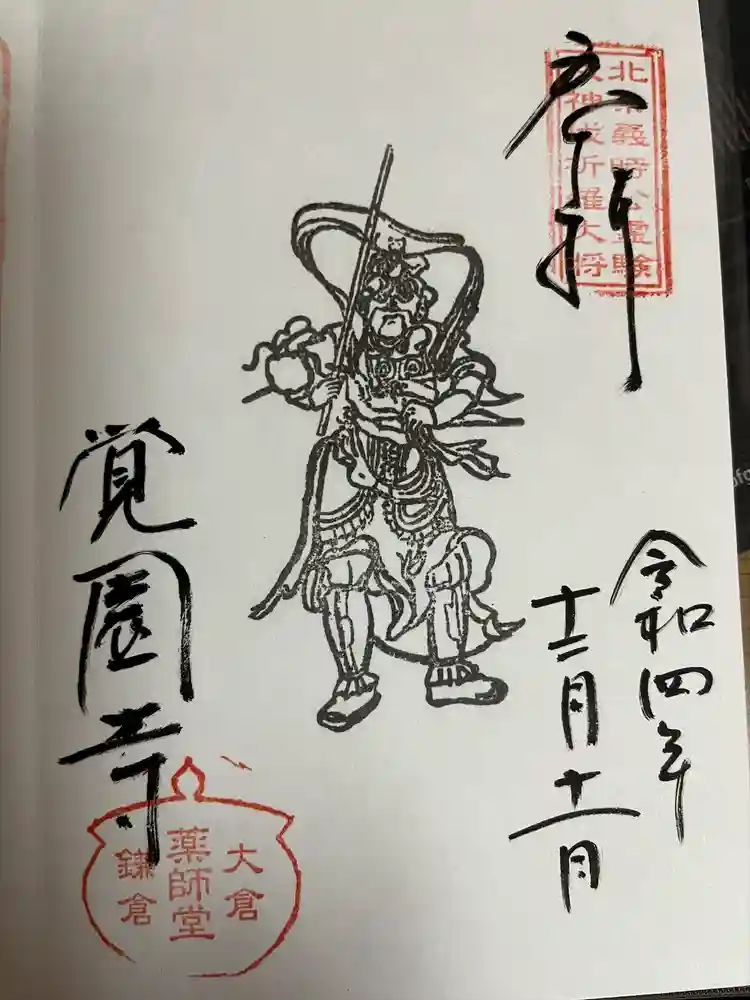 北条義時公霊験
戌神伐折羅大将
令和四年
十二月十一日
覚園寺
大倉
薬師堂
鎌倉